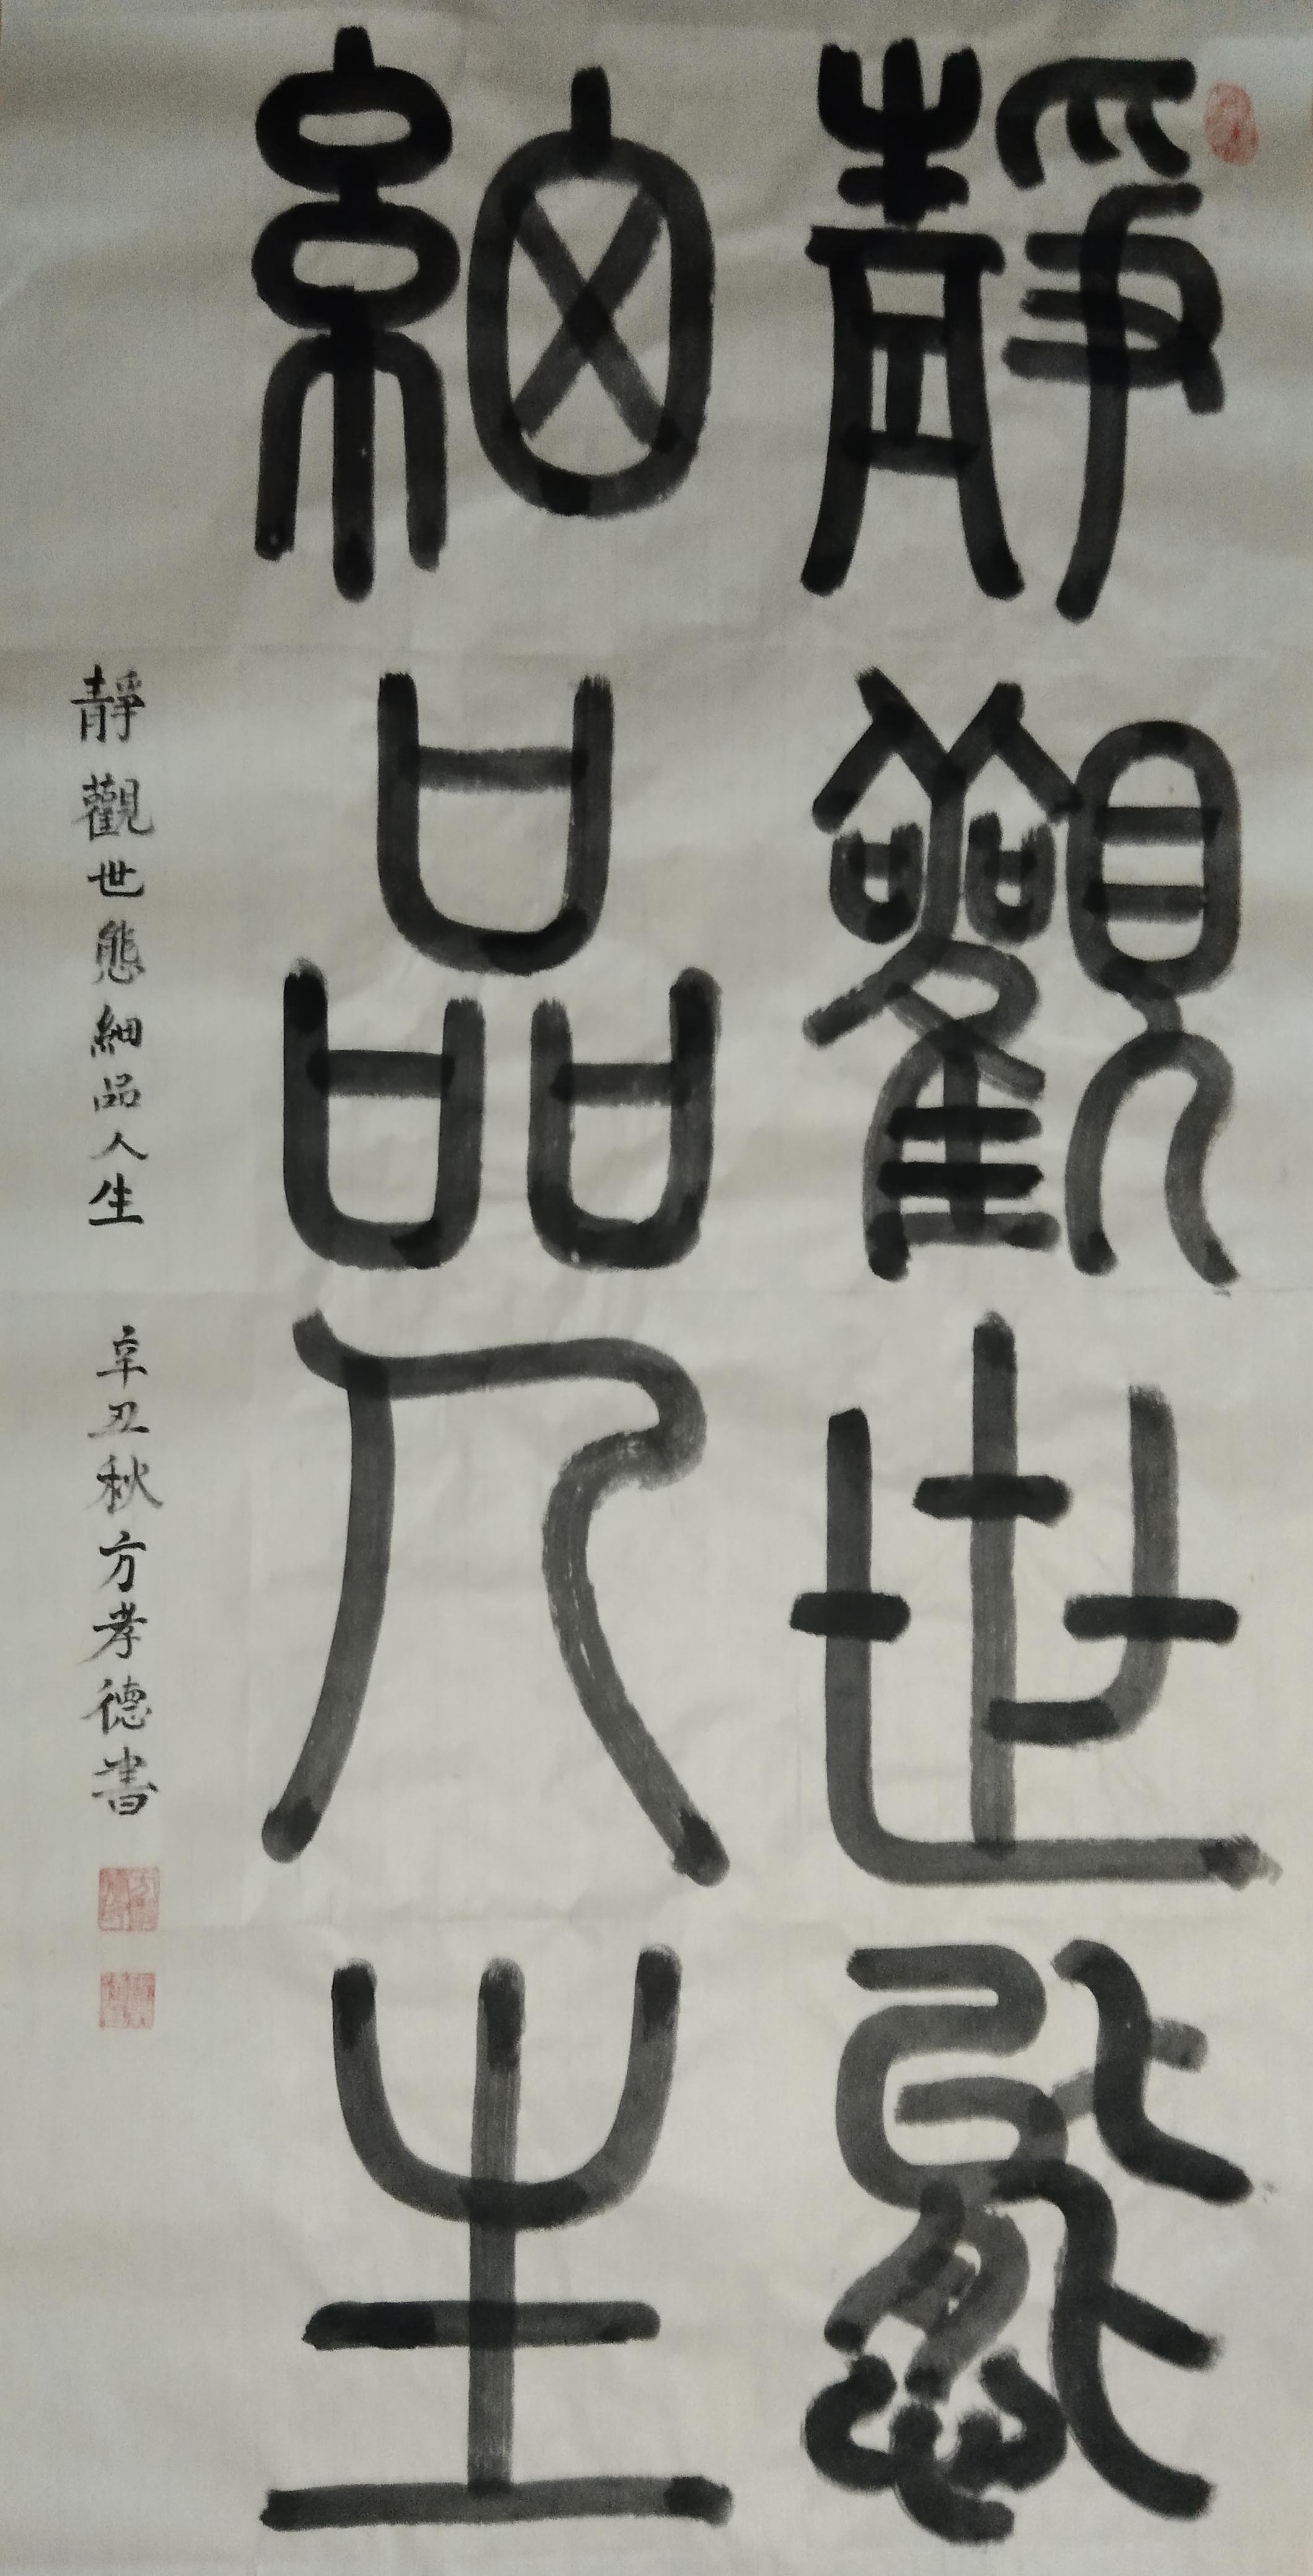 靜觀世態
細品人生
靜觀世態細品人生 辛丑秋方孝德書